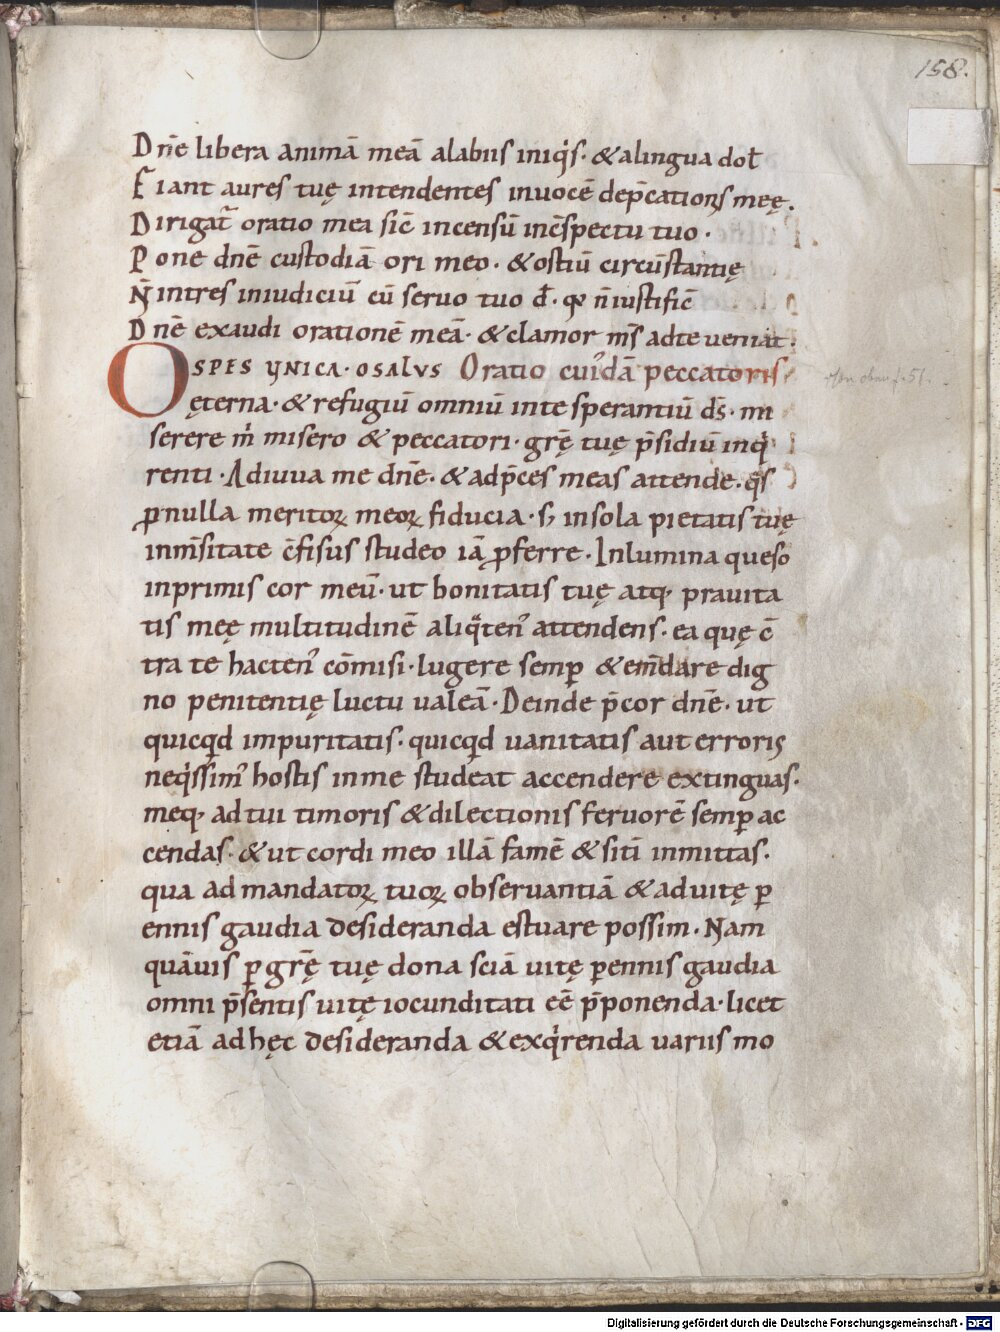 158.
Dn̄e libera animā meā alabiis iniq̍s· & alingua dol̄
Fiant aures tuę intendentes inuocē dep̄cationis meę.
Dirigat᷑ oratio mea sic̄ incensū inc̄spectu tuo·
Pone dn̄e custodiā ori meo· & ostiū circūstantię
N̄ intres iniudiciū cū seruo tuo d̄· qꝛ n̄ iustific̄
Dn̄e exaudi orationē meā· & clamor m̄s adte ueniat·
OSPES YNICA· OSALVS Oratio cuiꝰdā peccatoris
ęterna· & refugiū omniū inte sperantiū ds̄· mi
serere m̍ misero & peccatori· gr̄ę tuę p̄sidiū inq̍
renti· Adiuua me dn̄e· & adp̄ces meas attende· q̄s
ꝓnulla meritoꝝ meoꝝ fiducia· sꝫ insola pietatis tuę
inm̄sitate c̄fisus studeo iā ꝓferre· Inlumina queso
inprimis cor meū· ut bonitatis tuę atqꝫ prauita
tis meę multitudinē aliq̄tenꝰ attendens· ea quę c̄
tra te hactenꝰ cōmisi· lugere semꝑ & em̄dare dig
no penitentię luctu ualeā· Deinde p̄cor dn̄e· ut
quicq̍d impuritatis· quicq̍d uanitatis aut erroris
neq̍ssimꝰ hostis inme studeat accendere extinguas·
meqꝫ adtui timoris & dilectionis feruorē semꝑ ac
cendas· & ut cordi meo illā famē & sitī inmittas·
qua admandatoꝝ tuoꝝ obseruantiā & aduitę ꝑ
ennis gaudia desideranda estuare possim· Nam
quāuis ꝑ gr̄ę tuę dona sciā uitę ꝑennis gaudia
omni p̄sentis uitę iocunditati eē p̄ponenda· licet
etiā adhęc desideranda & exq̍renda uariis mo
Digitalisierung gefördert durch die Deutsche Forschungsgemeinschaft - DFG